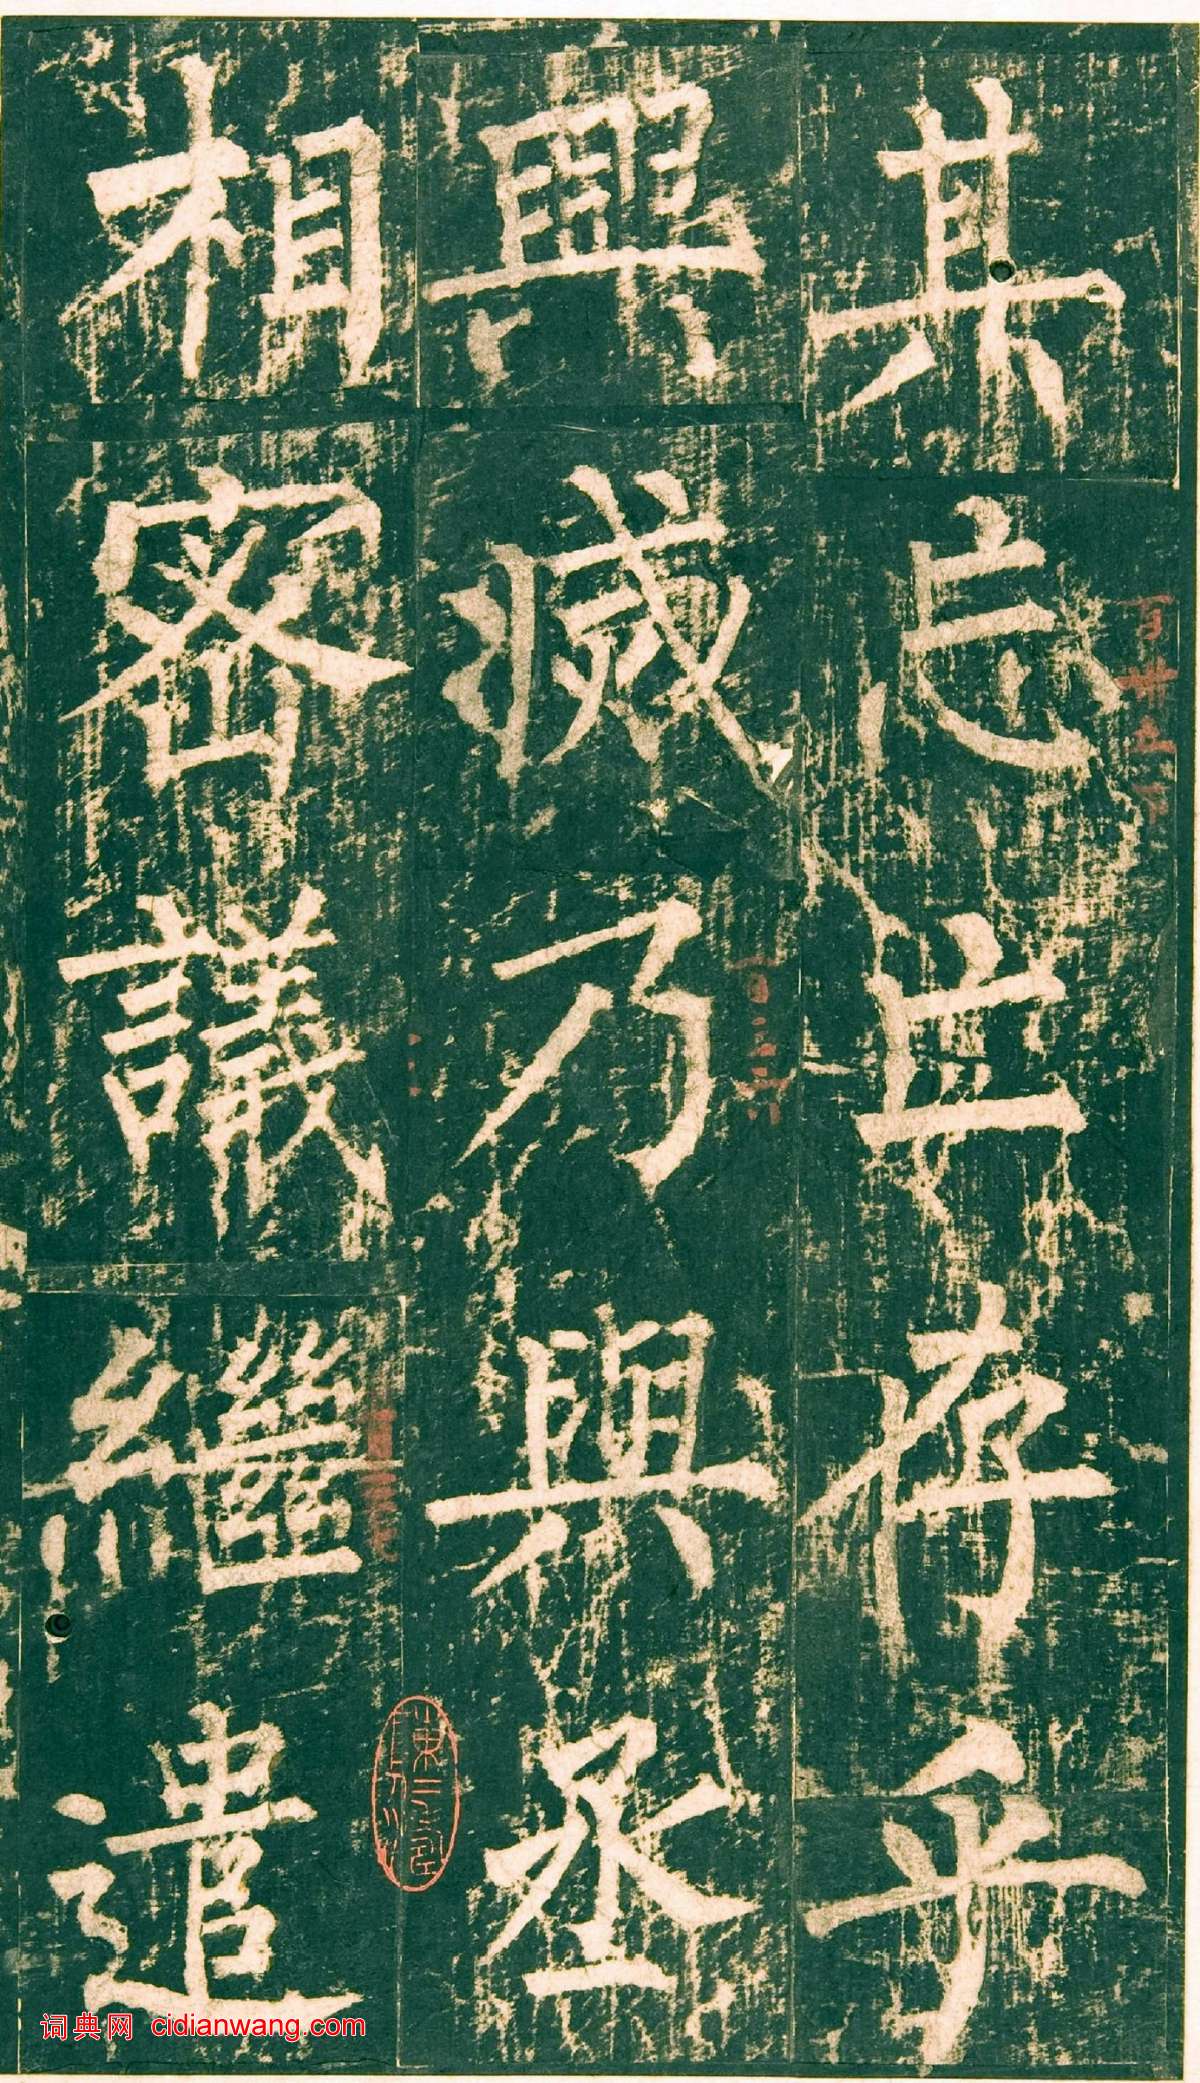 其忘亡存乎
興滅乃與丞
相密議繼遣
词典网 cidianwang.com